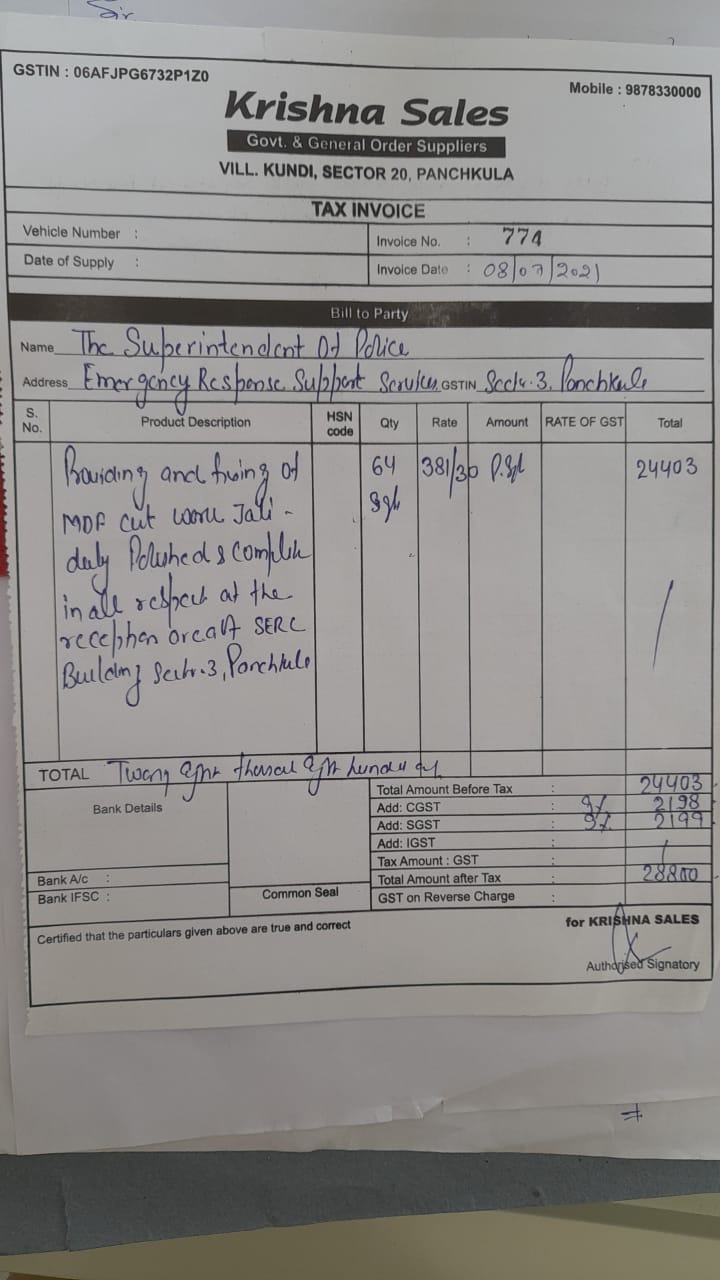 Sir
GSTIN : 06AFJPG6732P1Z0
Mobile : 9878330000
Krishna Sales
Govt. & General Order Suppliers
VILL. KUNDI, SECTOR 20, PANCHKULA
TAX INVOICE
Vehicle Number :
Invoice No. : 774
Date of Supply :
Invoice Date : 08/07/2021
Bill to Party
Name The Superintendent Of Police
Address Emergency Response Support Services, GSTIN Sector.3, Panchkula
S. No. Product Description HSN code Qty Rate Amount RATE OF GST Total
Providing and fixing of 64 381/30 P.Sft 24403
MDF cut work Jali - Sft
duly Polished & complete
in all respect at the
reception area of SERC
Building Sector.3, Panchkula
TOTAL Twenty eight thousand eight hundred only
Bank Details
Total Amount Before Tax : 24403
Add: CGST : 9% 2198
Add: SGST : 9% 2199
Add: IGST :
Tax Amount : GST :
Bank A/c :
Total Amount after Tax : 28800
Bank IFSC :
Common Seal
GST on Reverse Charge :
Certified that the particulars given above are true and correct
for KRISHNA SALES
Authorised Signatory